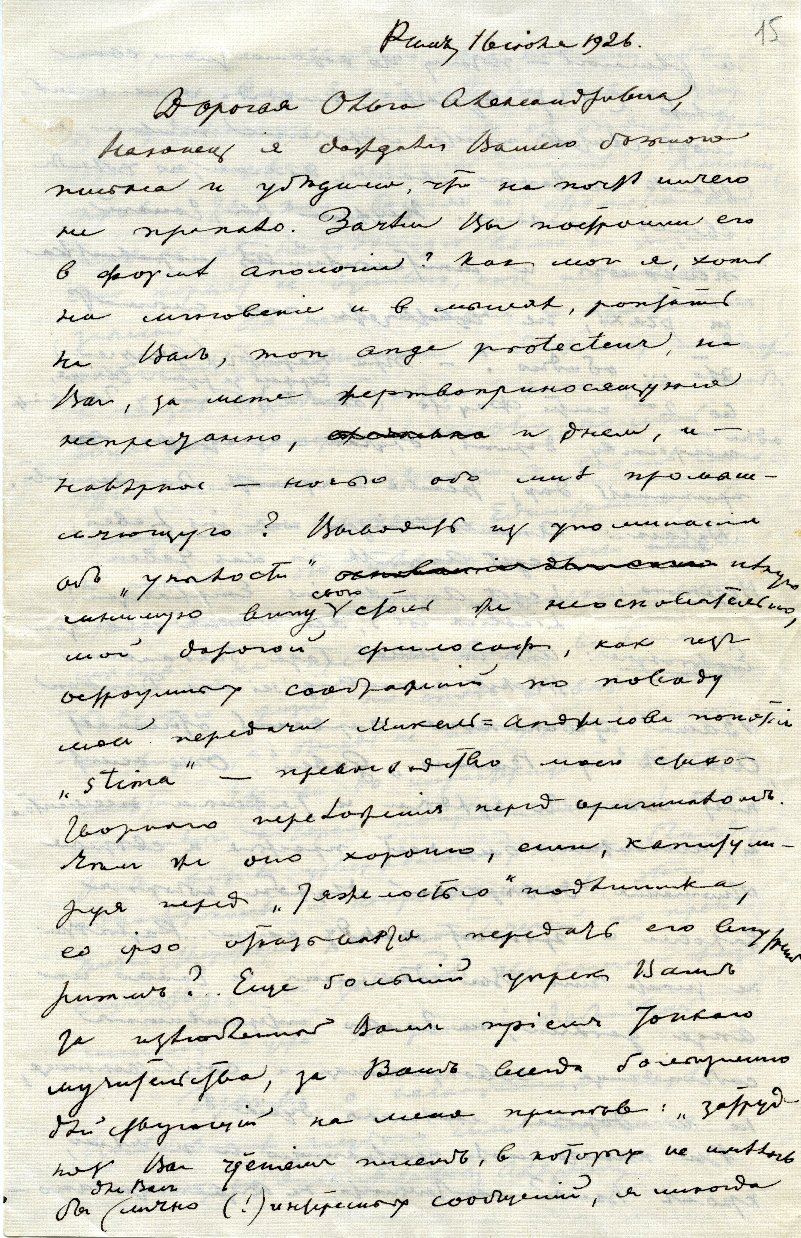 Римъ, 16 июля 1926.
15
Дорогая Ольга Александровна,
Наконец я дождался Вашего большого
письма и убѣдился, что на почтѣ ничего
не пропало. Зачѣм Вы построили его
в формѣ апологии? Как мог я, хоть
на мгновенiе и в мыслях, роптать
на Васъ, mon ange protecteur, на
Вас, за меня жертвоприносящуюся
непрестанно, и днем, и —
навѣрное — ночью обо мнѣ промыш-
ляющую? Выводить из упоминанiя
объ "учености" нѣкую
мнимую вину свою столь же неосновательно,
мой дорогой философ, как изъ
остроумных соображенiй по поводу
моей передачи Микель=Анджелова понятiя
"stima" — превосходство моего стихо-
творнаго переложенiя перед оригиналомъ.
Чѣм же оно хорошо, если, капитули-
руя перед "тяжелостью" подлинника,
ео ipso отказывается передать его внутреннiй
ритмъ?.. Еще большiй упрек Вамъ
за излюбленный Вами прiем тонкаго
мучительства, за Вашъ всегда болѣзненно
дѣйствующiй на меня припѣвъ: "затруд-
нять Вас чтенiем писемъ, в которых не имѣлось
бы (лично для Васъ (!) интересных сообщенiй, я никогда